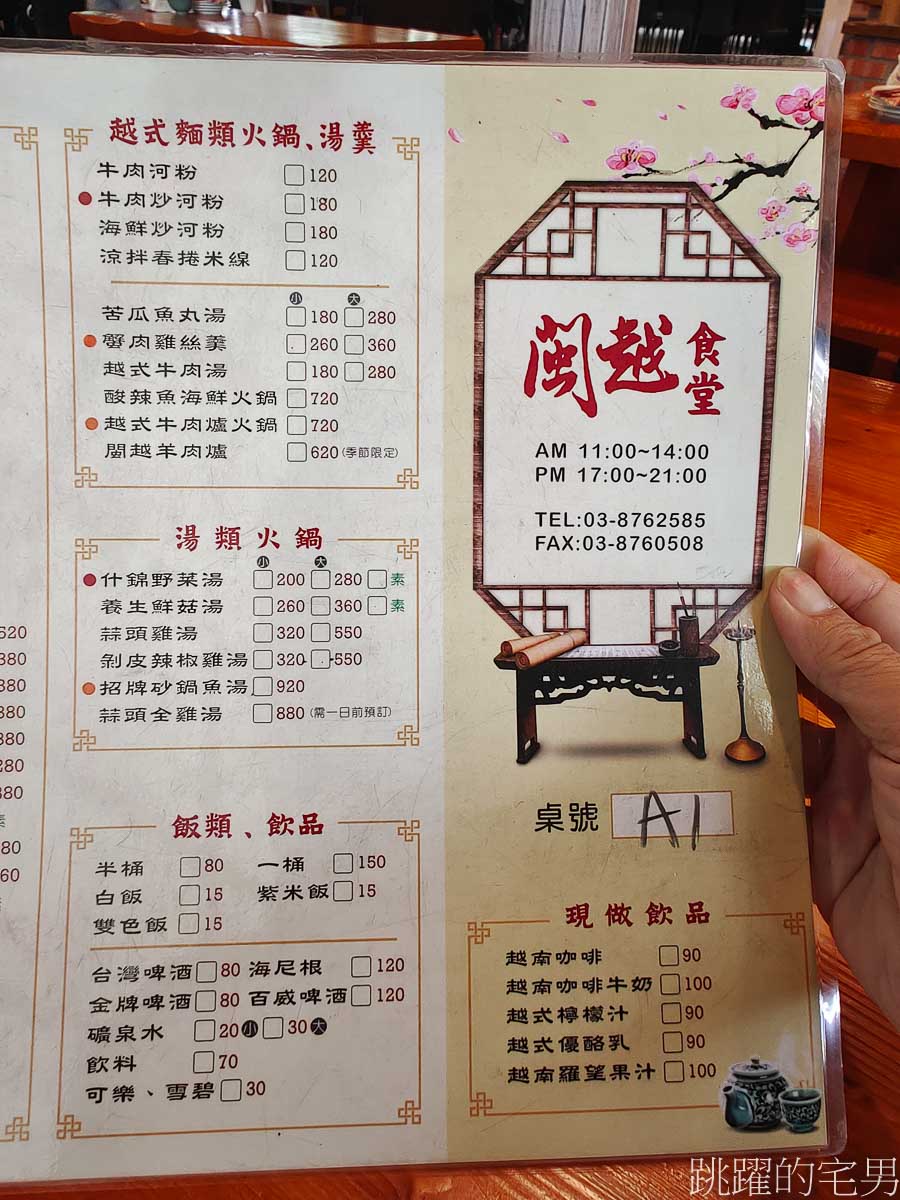 越式麵類火鍋、湯羹
牛肉河粉 120
牛肉炒河粉 180
海鮮炒河粉 180
涼拌春捲米線 120
小 大
苦瓜魚丸湯 180 280
蟹肉雞絲羹 260 360
越式牛肉湯 180 280
酸辣魚海鮮火鍋 720
越式牛肉爐火鍋 720
閩越羊肉爐 620 (季節限定)
湯類火鍋
小 大
什錦野菜湯 200 280 素
養生鮮菇湯 260 360 素
蒜頭雞湯 320 550
剝皮辣椒雞湯 320 550
招牌砂鍋魚湯 920
蒜頭全雞湯 880 (需一日前預訂)
飯類、飲品
半桶 80 一桶 150
白飯 15 紫米飯 15
雙色飯 15
台灣啤酒 80 海尼根 120
金牌啤酒 80 百威啤酒 120
礦泉水 20 小 30 大
飲料 70
可樂、雪碧 30
620
380
380
380
380
280
380
素
80
60
閩越食堂
AM 11:00~14:00
PM 17:00~21:00
TEL:03-8762585
FAX:03-8760508
桌號 A1
現做飲品
越南咖啡 90
越南咖啡牛奶 100
越式檸檬汁 90
越式優酪乳 90
越南羅望果汁 100
跳躍的宅男